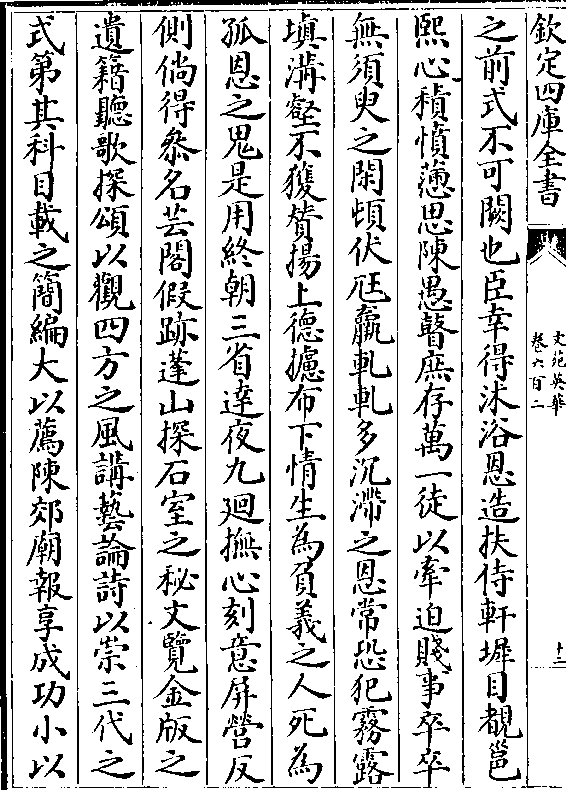 欽定四庫全書
文苑英華
卷六百二
十二
之前式不可闕也臣幸得沐浴恩造扶侍軒墀目覩邕
熙心積憤懣思陳愚瞽庶存萬一徒以牽迫賤事卒卒
無須臾之閑頓伏尫羸軋軋多沉滯之恩常恐犯霧露
填溝壑不獲賛揚上德攄布下情生為負義之人死為
孤恩之鬼是用終朝三省逹夜九廻撫心刻意屏營反
側倘得叅名芸閣假跡蓬山探石室之秘文覽金版之
遺籍聽歌探頌以觀四方之風講藝論詩以崇三代之
式第其科目載之簡編大以薦陳郊廟報享成功小以